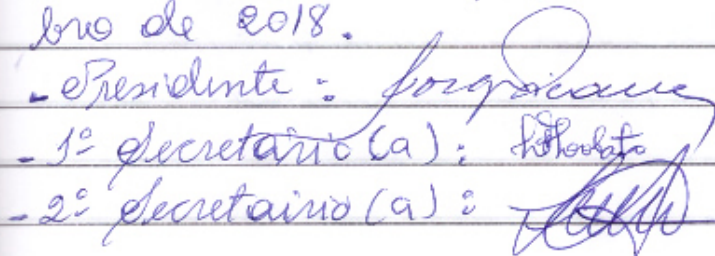 bro de 2018.
- Presidente:
- 1º Secretário(a):
- 2º Secretário(a):